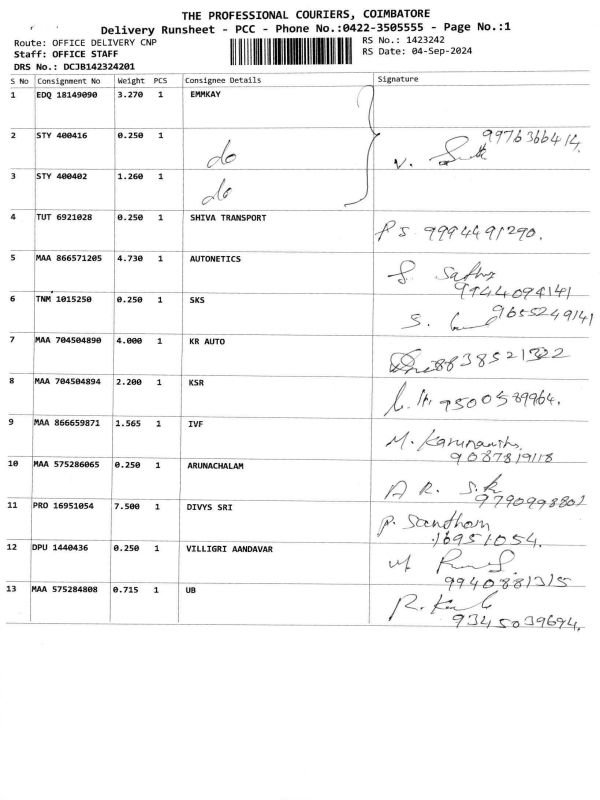 THE PROFESSIONAL COURIERS, COIMBATORE
Delivery Runsheet - PCC - Phone No.:0422-3505555 - Page No.:1
Route: OFFICE DELIVERY CNP
RS No.: 1423242
Staff: OFFICE STAFF
RS Date: 04-Sep-2024
DRS No.: DCJB142324201
S No Consignment No Weight PCS Consignee Details Signature
1 EDQ 18149090 3.270 1 EMMKAY
2 STY 400416 0.250 1 do 9976366414.
V.
3 STY 400402 1.260 1 do
4 TUT 6921028 0.250 1 SHIVA TRANSPORT
PS 9994491290.
5 MAA 866571205 4.730 1 AUTONETICS
9944094141
6 TNM 1015250 0.250 1 SKS
S. 9655249141
7 MAA 704504890 4.000 1 KR AUTO
8 MAA 704504894 2.200 1 KSR
9500589964.
9 MAA 866659871 1.565 1 IVF
M.
9087819118
10 MAA 575286065 0.250 1 ARUNACHALAM
A R. S.K
9790998802
11 PRO 16951054 7.500 1 DIVYS SRI
P. Santhom
16951054.
12 DPU 1440436 0.250 1 VILLIGRI AANDAVAR
9940881315
13 MAA 575284808 0.715 1 UB
R.
9345039694.